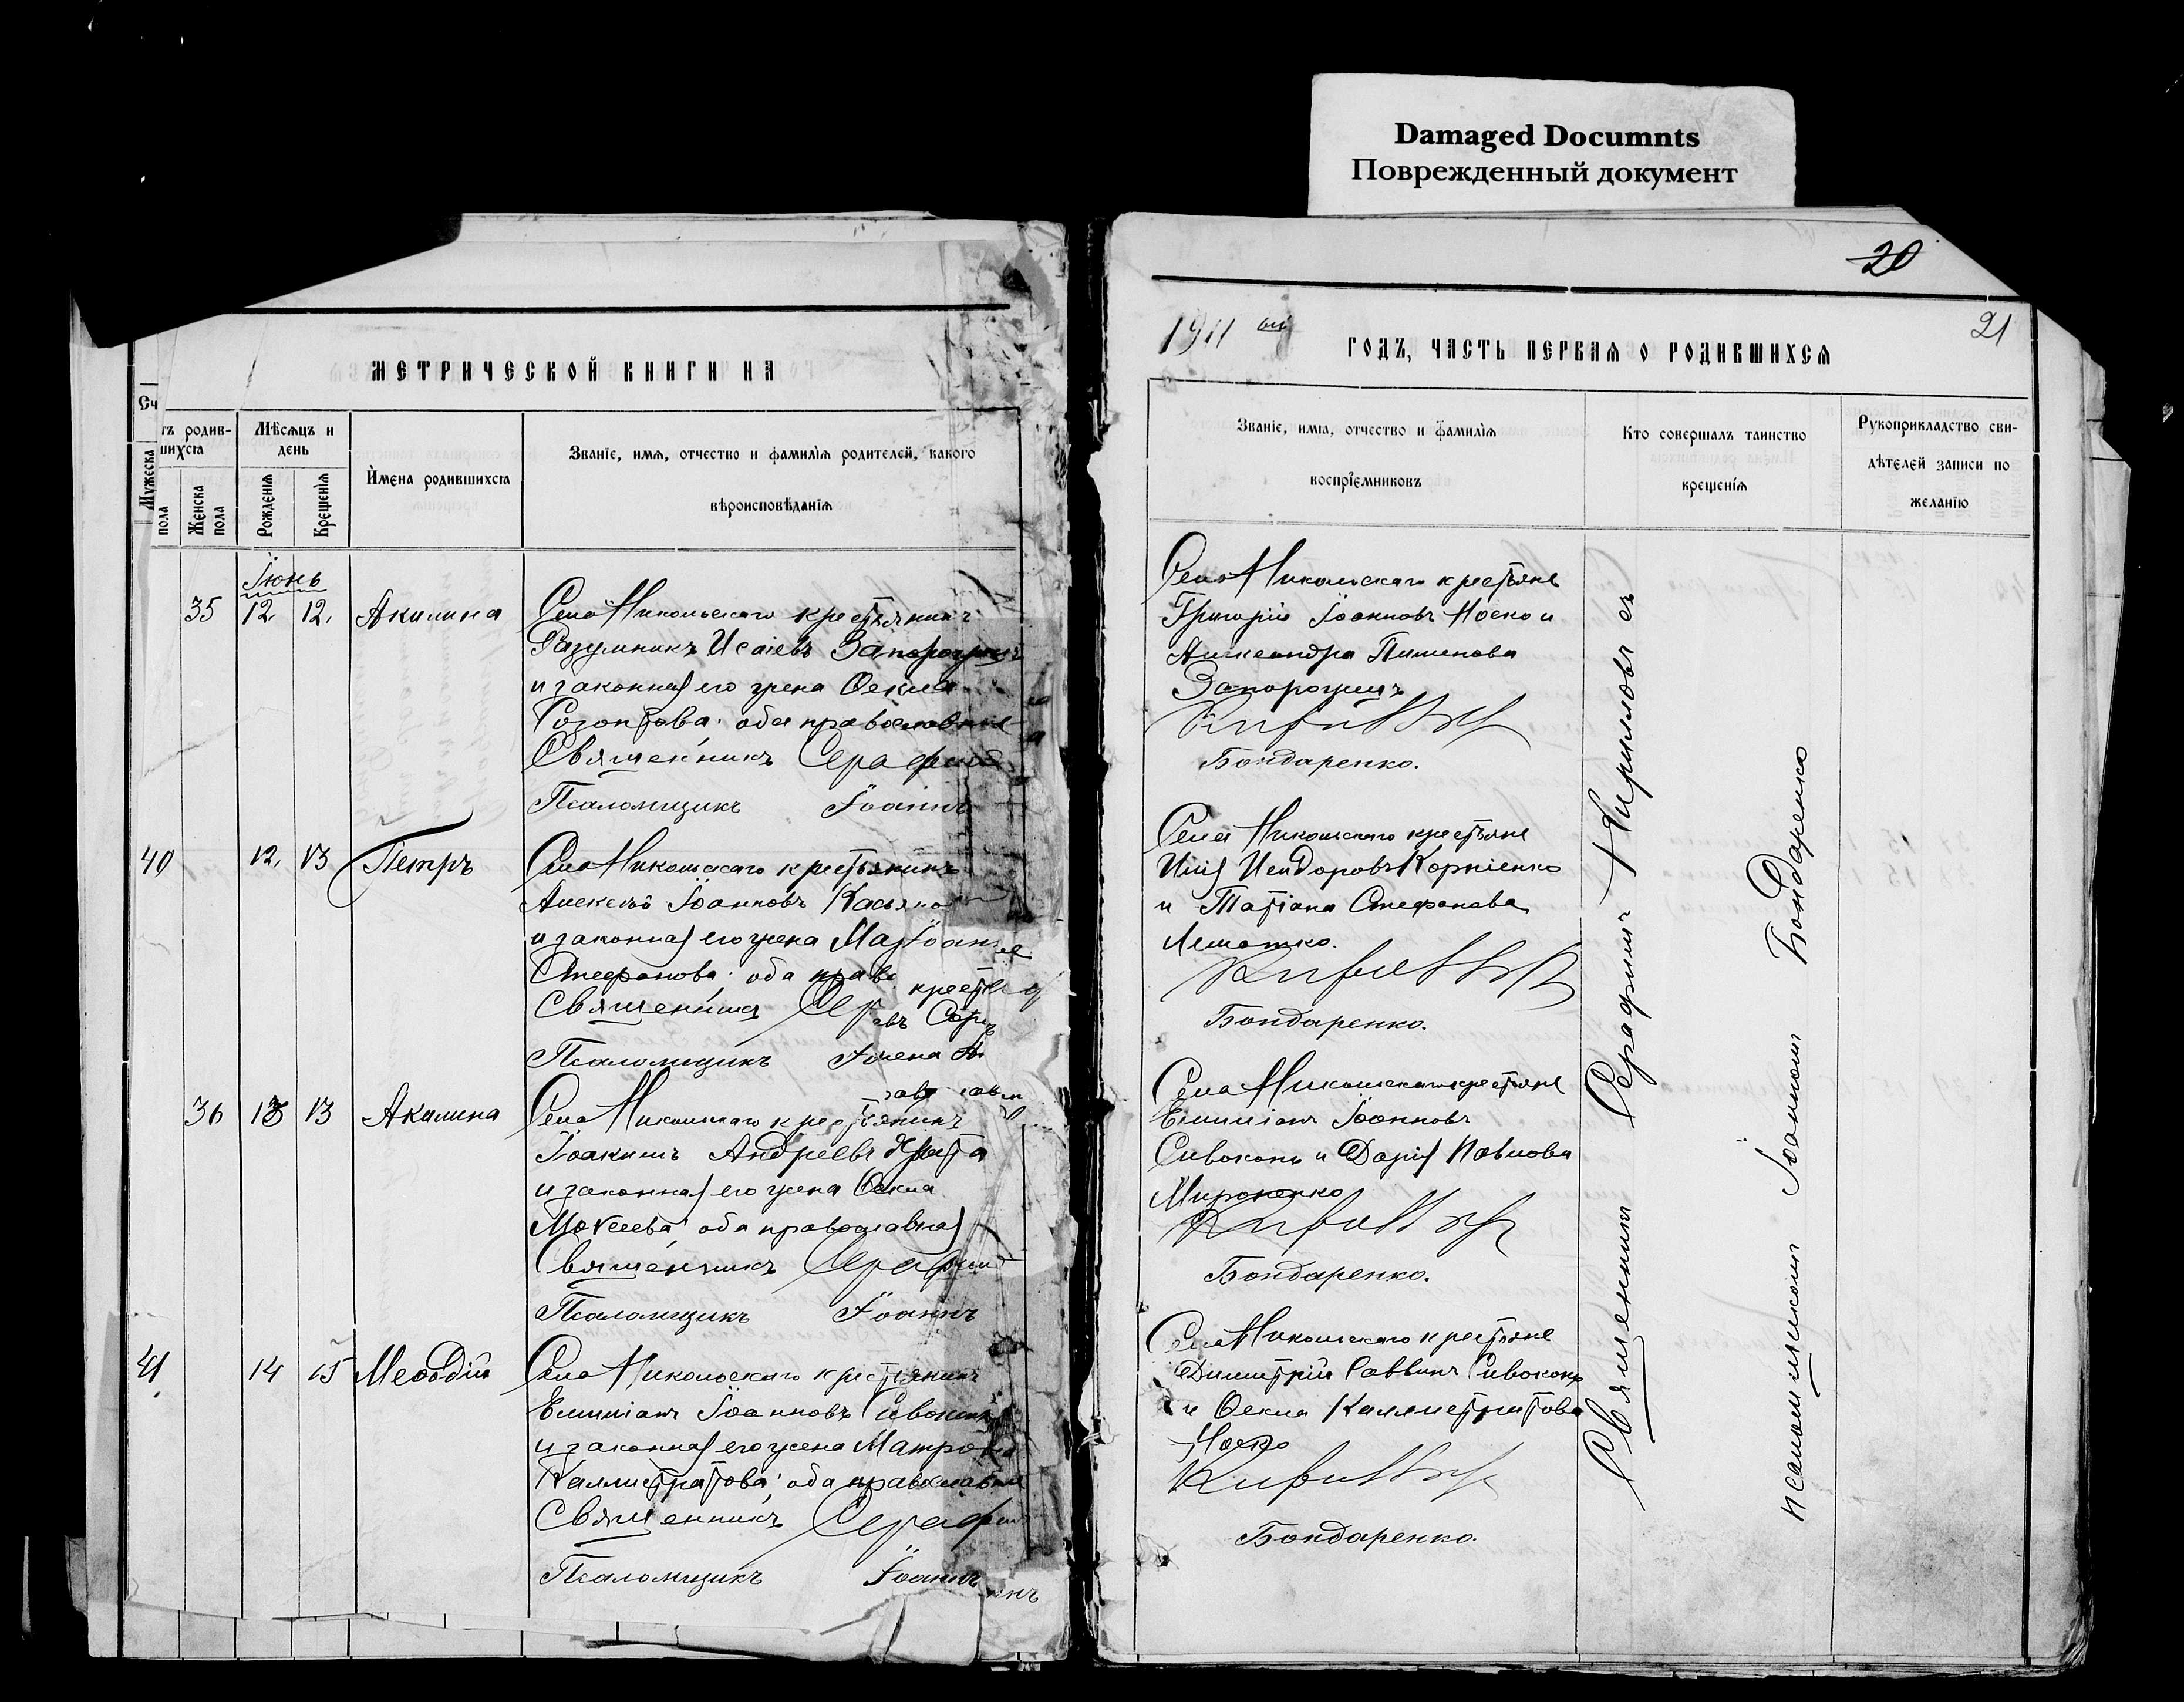 Damaged Documnts
Поврежденный документ
20
21
МЕТРИЧЕСКОЙ КНИГИ НА
Сч
тъ родив-
шихсѧ
Мужеска
пола
Женска
пола
Мѣсѧцъ и
день
Рожденїѧ
Крещенїѧ
Имена родившихсѧ
Званїе, имѧ, отчество и фамилїѧ родителей, какого
вѣроисповѣданїѧ
Іюнь
35 12. 12. Акилина
Села Никольскаго крестьянинъ
Разумникъ Исаіевъ Запорожецъ
и законная его жена Ѳекла
Созонтова; оба православные
Священникъ Серафимъ
Псаломщикъ Іоаннъ
40 12. 13 Петръ
Села Никольскаго крестьянинъ
Алексѣй Іоанновъ Касьяно
и законная его жена Ма
Іоан
Стефанова; оба право
крестья
Священникъ Сер
евъ
Псаломщикъ І
жена
36 13 13 Акилина
Села Никольскаго крестьянинъ
Іоакимъ Андреевъ
и законная его жена Ѳекла
Мокеева; оба православная
Священникъ Серафим
Псаломщикъ Іоаннъ
41 14 15 Меѳодій
Села Никольскаго крестьянинъ
Емиліанъ Іоанновъ Сивоконь
и законная его жена Матрона
Каллистратова; оба православные
Священникъ Серафим
Псаломщикъ Іоаннъ
икъ
1911 ый ГОДЪ, ЧАСТЬ ПЕРВАѦ О РОДИВШИХСѦ
Званїе, имѧ, отчество и фамилїѧ
воспрїемниковъ
Кто совершалъ таинство
крещенїѧ
Рукоприкладство сви-
дѣтелей записи по
желанію
Села Никольскаго крестьяне
Григорій Іоанновъ Носко и
Александра Пименова
Запорожецъ
Кирилловъ
Бондаренко.
Села Никольскаго крестьяне
Илія Исидоровъ Корніенко
и Татіана Стефанова
Лешатко.
Кирилловъ
Бондаренко.
Села Никольскаго крестьяне
Емиліанъ Іоанновъ
Сивоконь и Дарія Павлова
Мироненко
Кирилловъ
Бондаренко.
Села Никольскаго крестьяне
Димитрій Саввинъ Сивоконь
и Ѳекла Каллистратова
Носко
Кирилловъ
Бондаренко.
Священникъ Серафимъ Кирилловъ съ
псаломщикомъ Іоанномъ Бондаренко